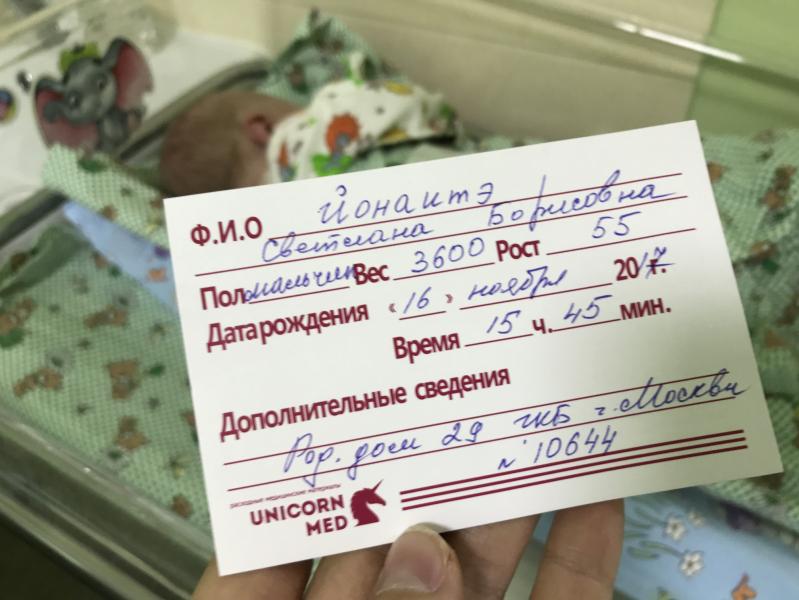 Ф.И.О Йонайтэ
Светлана Борисовна
Пол мальчик Вес 3600 Рост 55
Дата рождения «16» ноября 2017г.
Время 15 ч. 45 мин.
Дополнительные сведения
Род. дом 29 ГКБ г. Москвы
N 10644
расходные медицинские материалы
UNICORN
MED